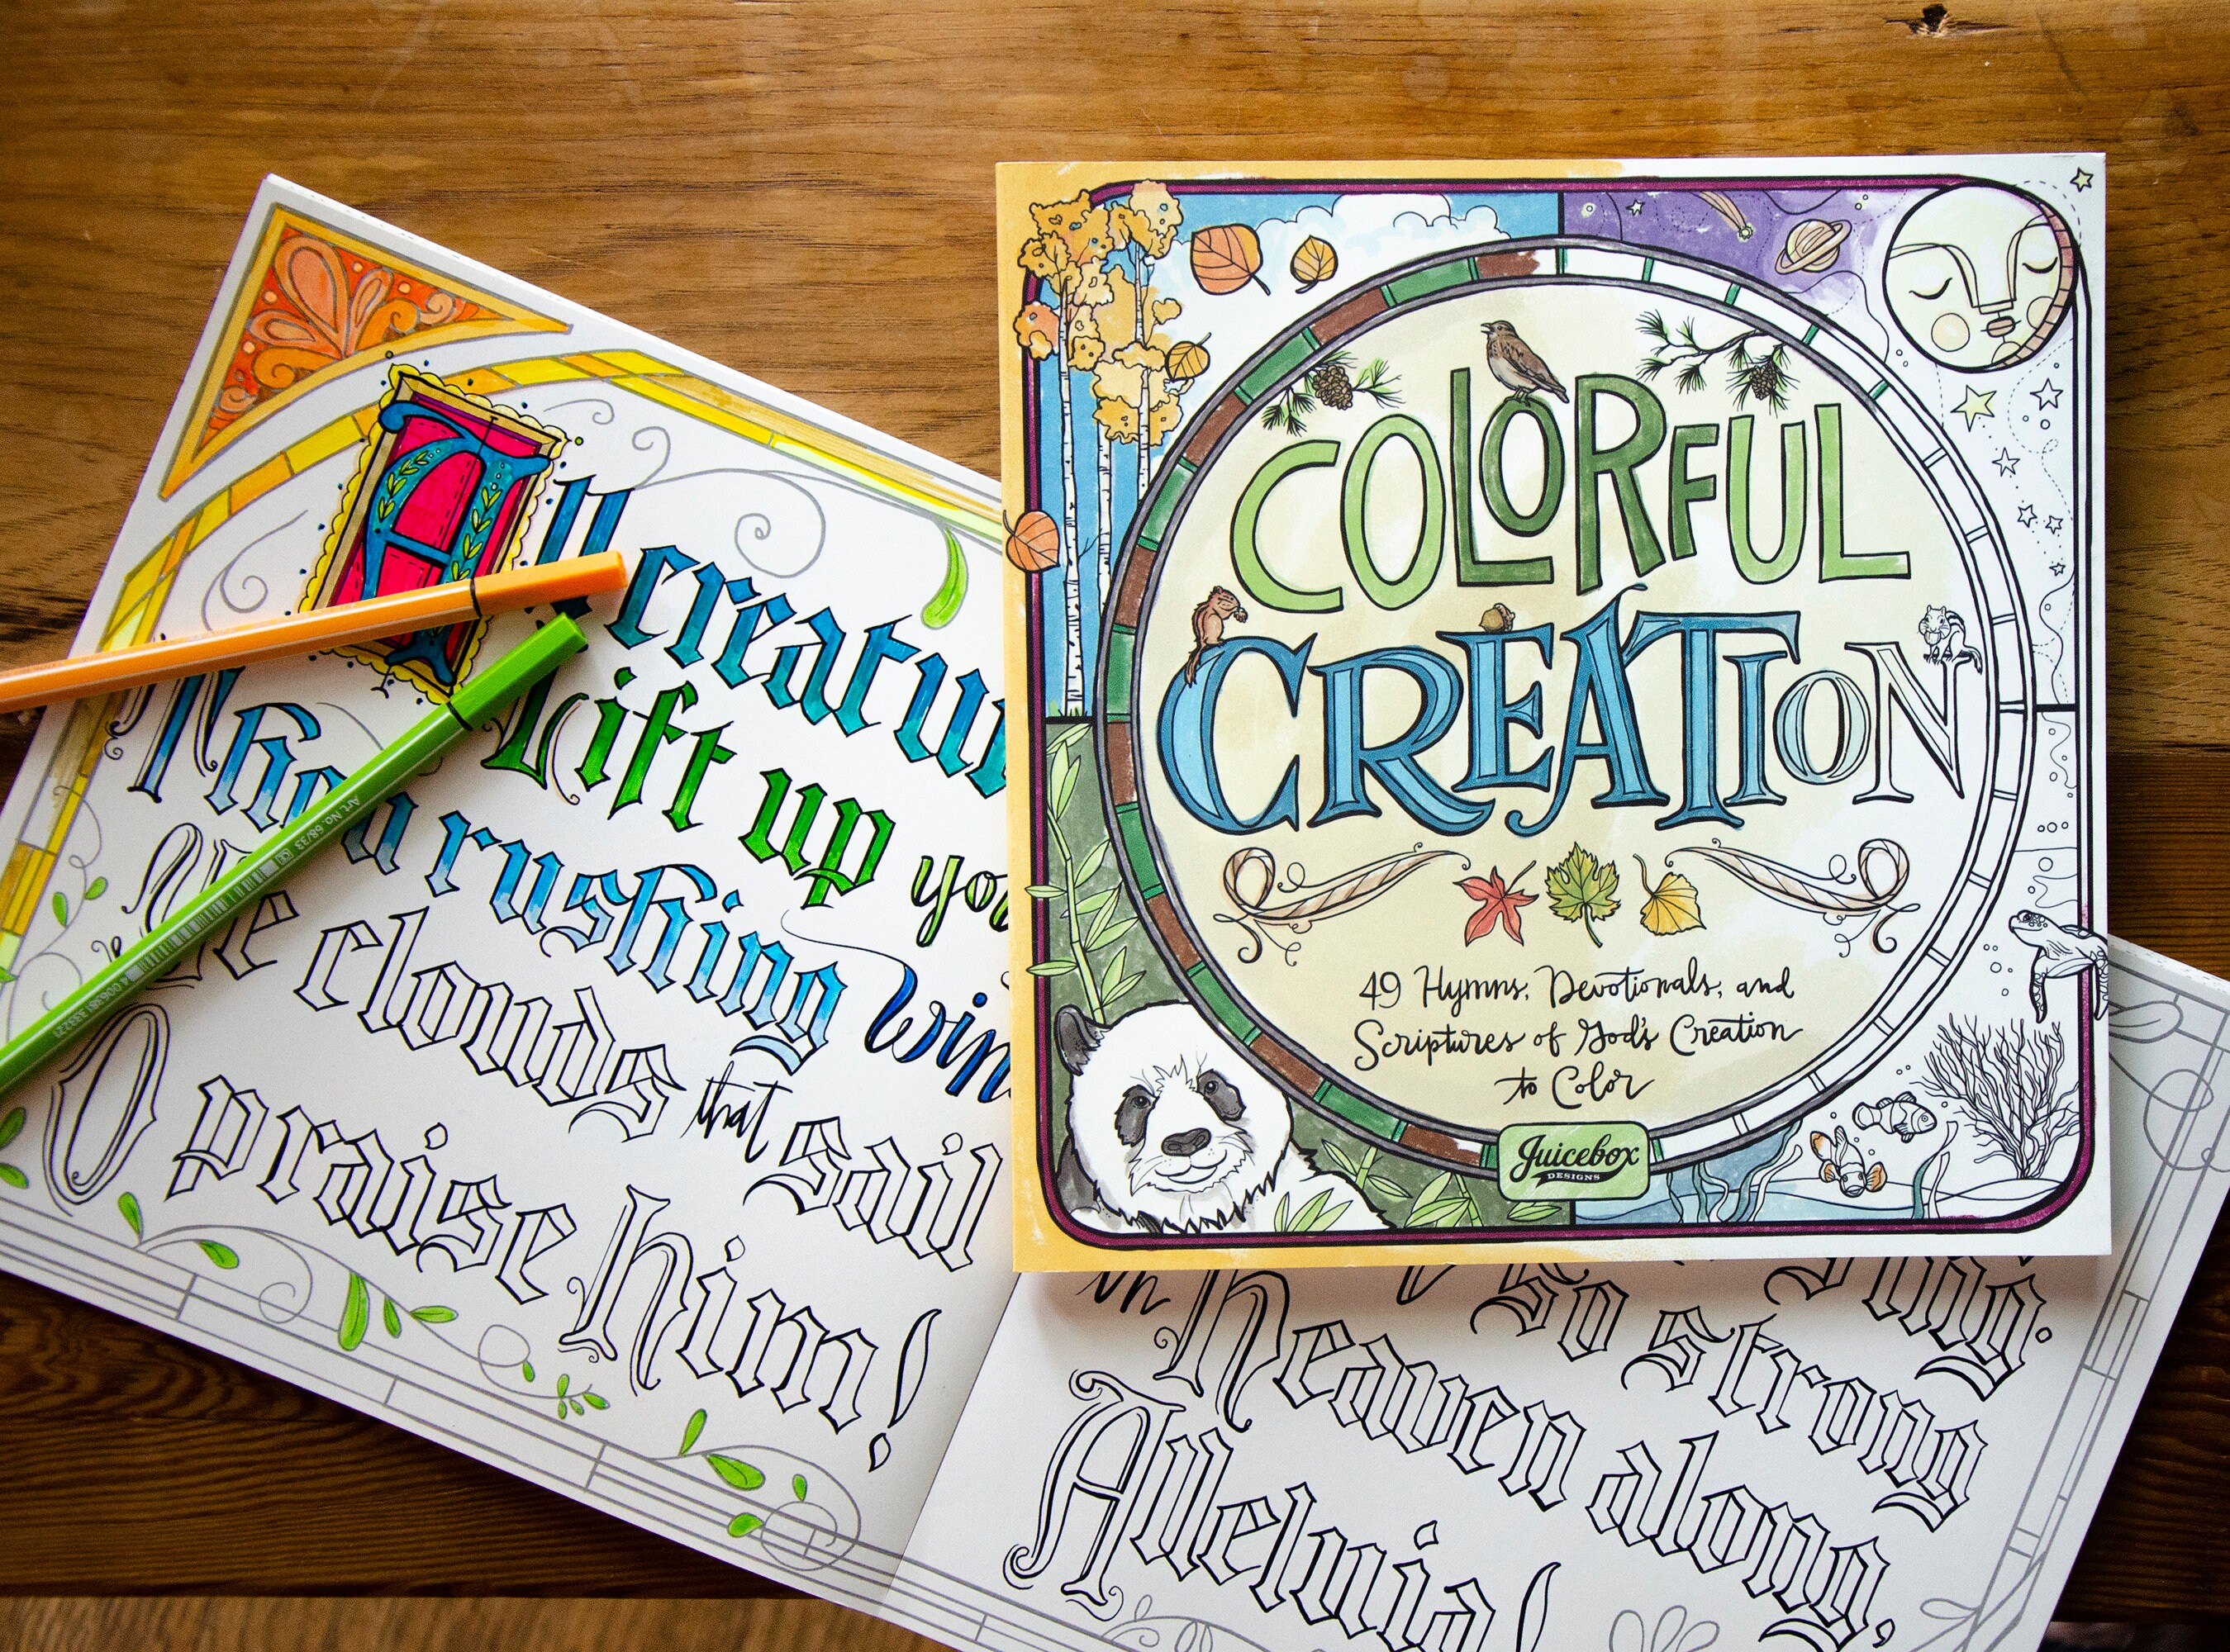 All creatu
Lift up you
Thou rushing win
Ye clouds that sail
O praise him!
COLORFUL
CREATION
49 Hymns, Devotionals, and
Scriptures of God's Creation
to Color
Juicebox
DESIGNS
ing.
so strong
in heaven along,
Alleluia!
Art. No. 68/33